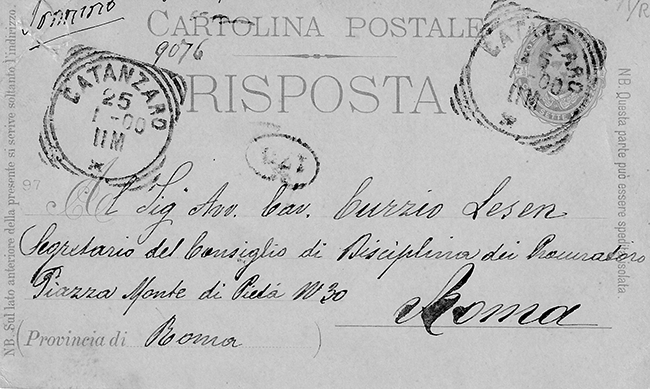 CARTOLINA POSTALE
9076
RISPOSTA
CATANZARO
25
1-00
11M
CATANZARO
-00
11M
97
Al Sig Avv. Cav. Curzio Lesen
Segretario del Consiglio di Disciplina dei Procuratori
Piazza Monte di Pietá N 30
Roma
(Provincia di Roma)
NB. Sul lato anteriore della presente si scrive soltanto l'indirizzo.
NB. Questa parte può essere spedita isolata